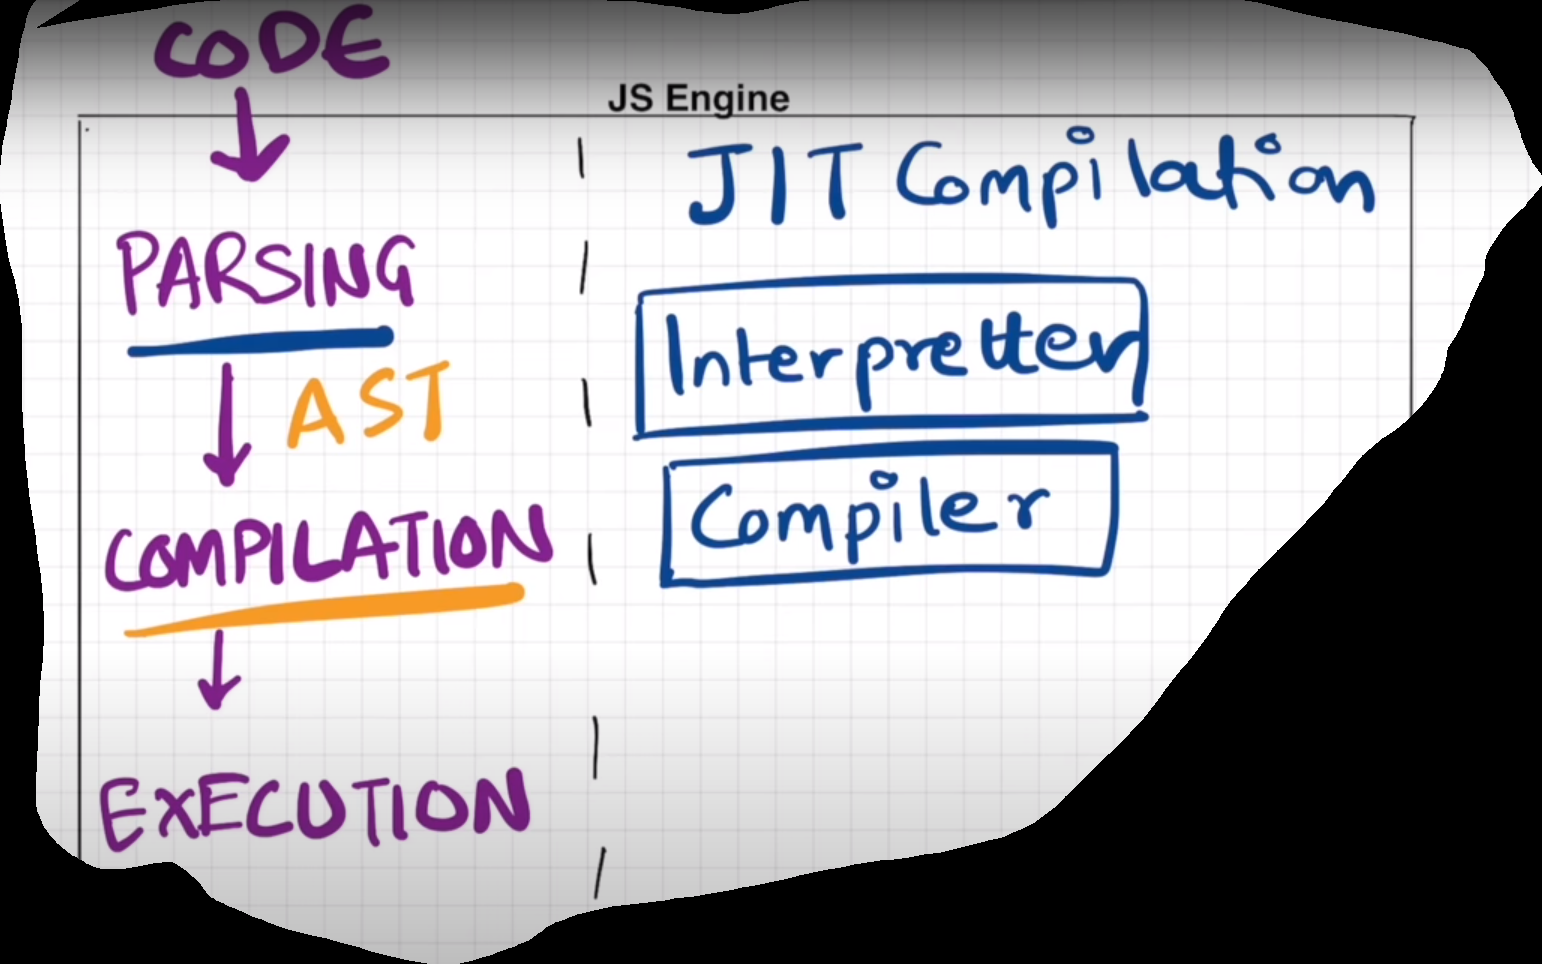 CODE
JS Engine
PARSING
AST
COMPILATION
EXECUTION
JIT Compilation
Interpretter
Compiler